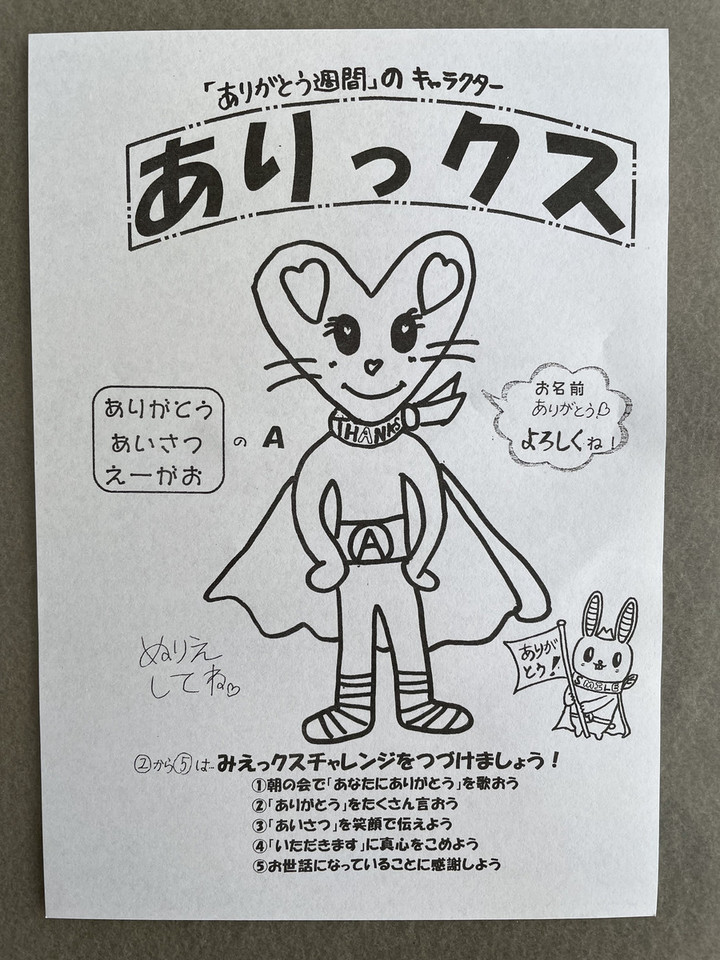 「ありがとう週間」の キャラクター
ありっクス
ありがとう
あいさつ
えーがお
の A
お名前
ありがとう♡
よろしくね!
THANKS
A
ぬりえ
してね♡
ありが
とう!
②から⑤は… みえっクスチャレンジをつづけましょう!
①朝の会で「あなたにありがとう」を歌おう
②「ありがとう」をたくさん言おう
③「あいさつ」を笑顔で伝えよう
④「いただきます」に真心をこめよう
⑤お世話になっていることに感謝しよう